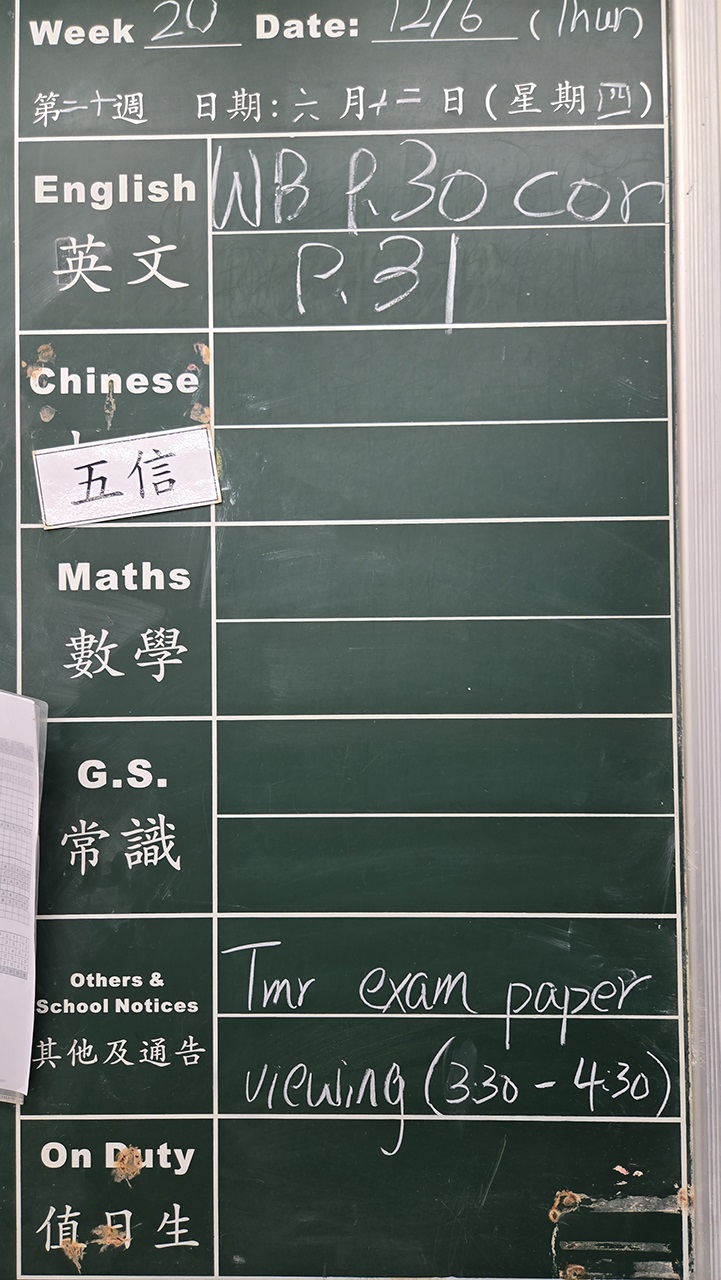 Week 20 Date: 12/6 (Thur)
第二十週 日期:六月十二日(星期四)
English
英文
WB P.30 cor
P.31
Chinese
五信
Maths
數學
G.S.
常識
Others &
School Notices
其他及通告
Tmr exam paper
viewing (3:30 - 4:30)
On Duty
值日生